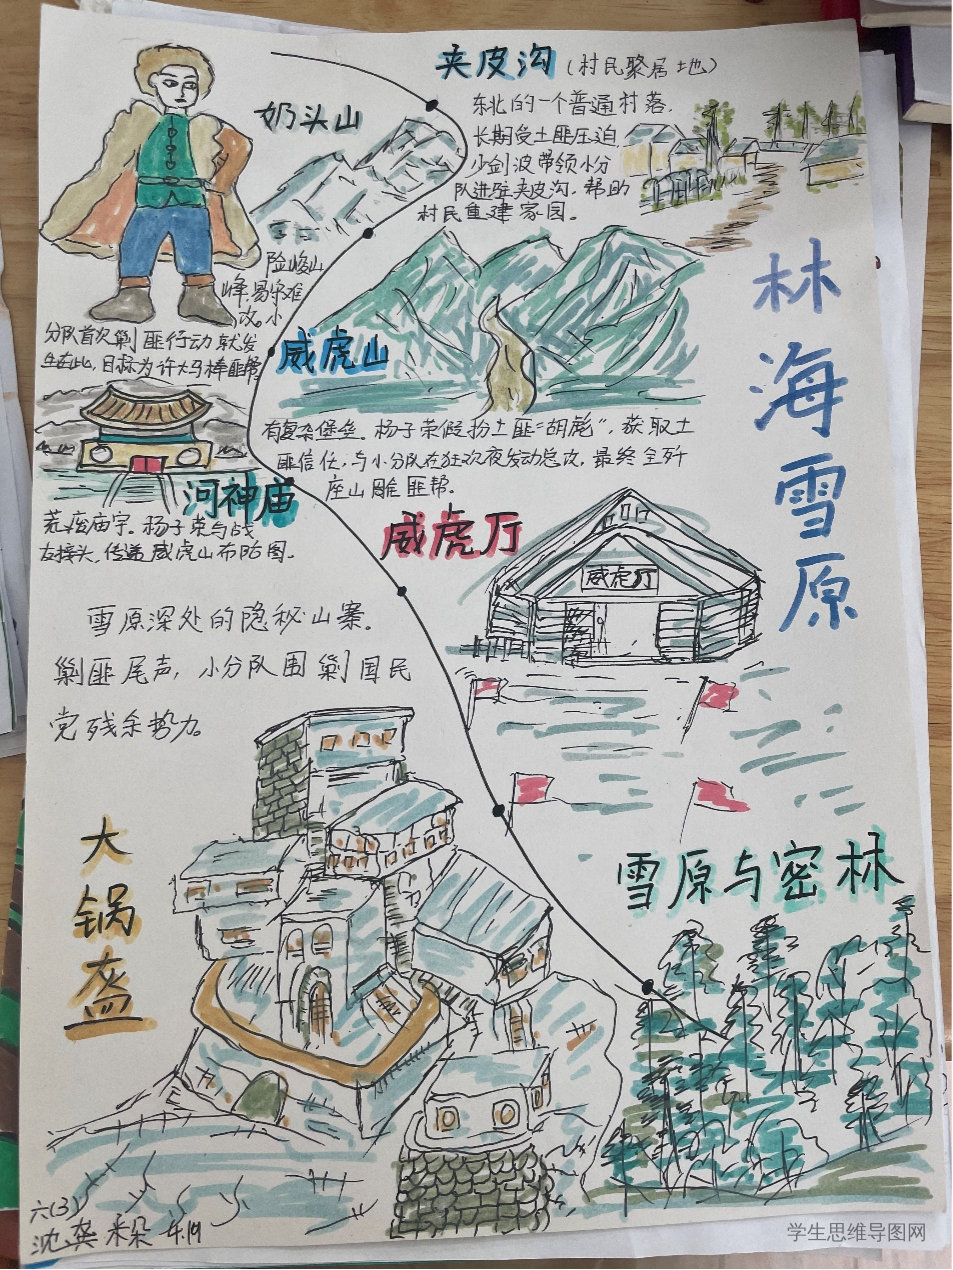 夹皮沟（村民聚居地）
东北的一个普通村落，
长期受土匪压迫
少剑波带领小分
队进驻夹皮沟，帮助
村民重建家园。
奶头山
险峻山
峰，易守难
攻。小
分队首次剿匪行动就发
生在此，目标为许大马棒匪帮
林海雪原
威虎山
有复杂堡垒。杨子荣假扮土匪"胡彪"，获取土
匪信任，与小分队在狂欢夜发动总攻，最终全歼
座山雕匪帮。
河神庙
荒废庙宇。杨子荣与战
友接头，传递威虎山布防图。
威虎厅
威虎厅
雪原深处的隐秘山寨。
剿匪尾声，小分队围剿国民
党残余势力。
大锅盔
雪原与密林
六(3)
沈龚米朵 4.19
学生思维导图网